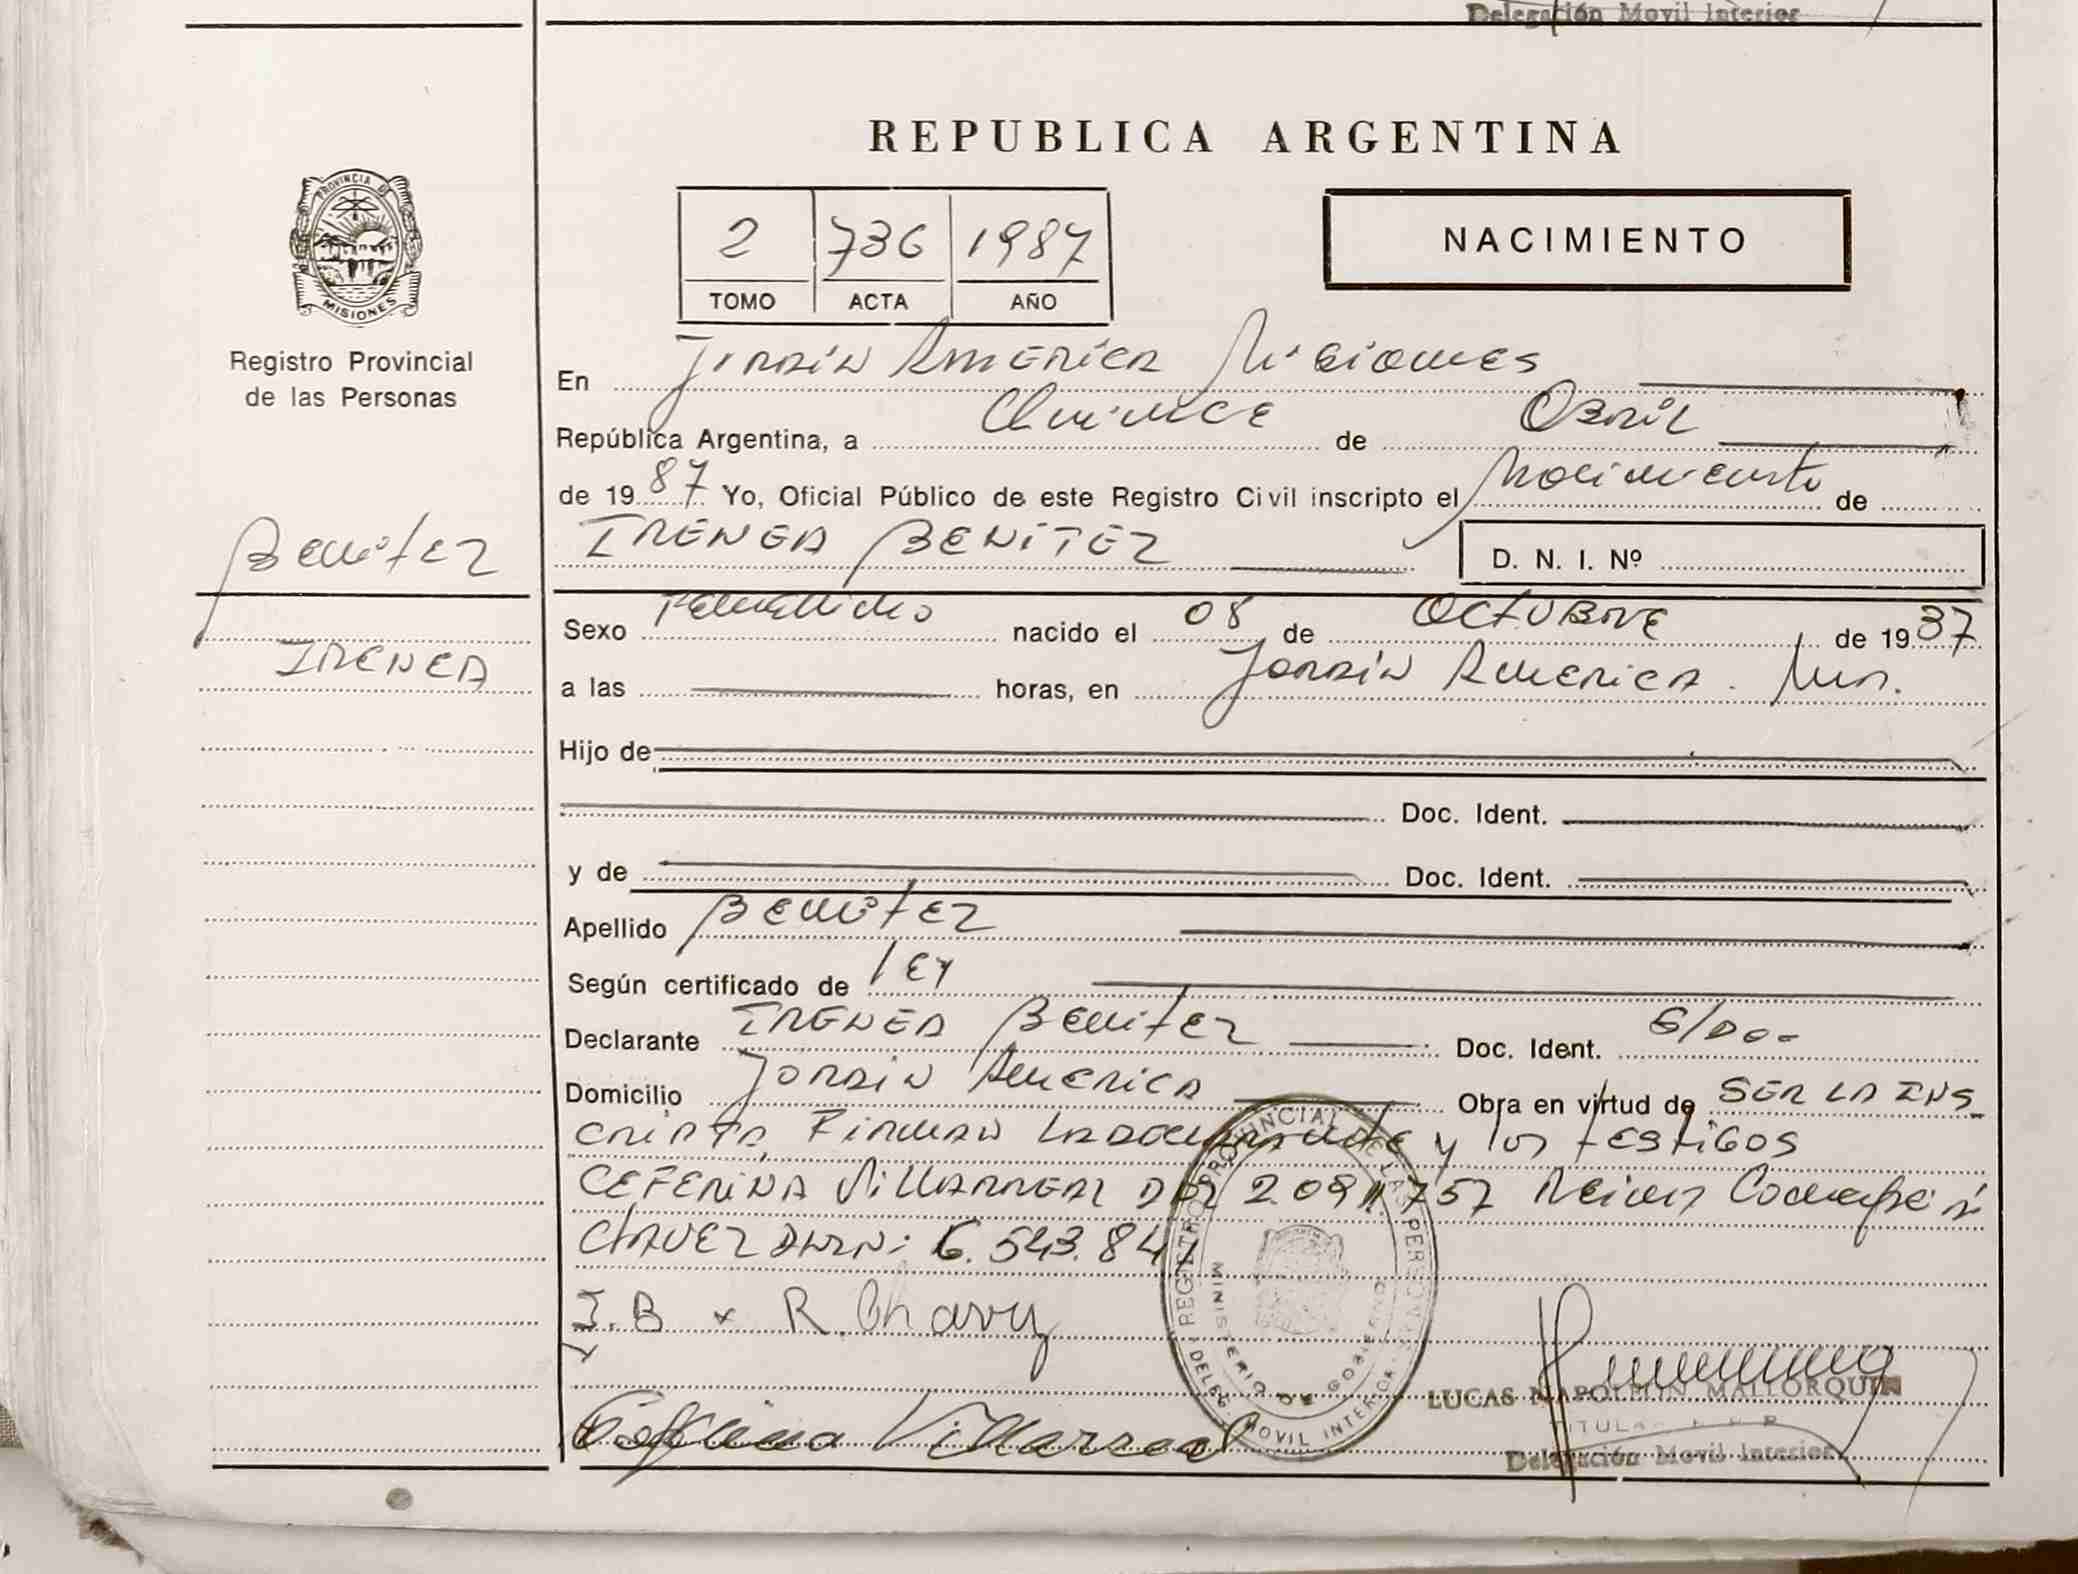 Delegación Movil Interior
REPUBLICA ARGENTINA
PROVINCIA DE
MISIONES
Registro Provincial
de las Personas
2 736 1987
TOMO ACTA AÑO
NACIMIENTO
En Jardin America Misiones
República Argentina, a Quince de Abril
de 1987 Yo, Oficial Público de este Registro Civil inscripto el Nacimiento de
IRENEA BENITEZ
D. N. I. Nº
Benitez
IRENEA
Sexo Femenino nacido el 08 de OCTUBRE de 1937
a las horas, en Jardin America. Mnes.
Hijo de
Doc. Ident.
y de Doc. Ident.
Apellido Benitez
Según certificado de ley
Declarante IRENEA Benitez Doc. Ident. S/Do-
Domicilio Jardin America Obra en virtud de SER LA INS
CRIPTA, Firman LA Declarante y los testigos
CEFERINA VILLARREAL DNI 2.091.757
CHAVEZ 6.543.84
I.B x R. Chavez
Ceferina Villarreal
REGISTRO PROVINCIAL DE LAS PERSONAS
MINISTERIO DE GOBIERNO
DELEG. MOVIL INTERIOR
LUCAS NAPOLEON MALLORQUIN
TITULAR
Delegación Movil Interior